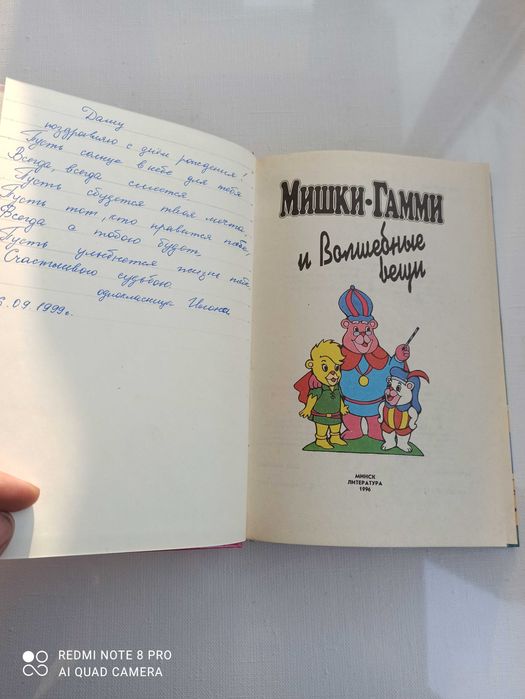 Дашу
поздравляю с днём рождения!
Пусть солнце в небе для тебя
Всегда, всегда смеется
Пусть сбудется твоя мечта
Пусть тот, кто нравится тебе,
Всегда с тобою будет,
Пусть улыбнется жизнь тебе
Счастливою судьбою.
одноклассница
.09.1999г.
МИШКИ-ГАММИ
и Волшебные
вещи
МИНСК
ЛИТЕРАТУРА
1996
REDMI NOTE 8 PRO
AI QUAD CAMERA